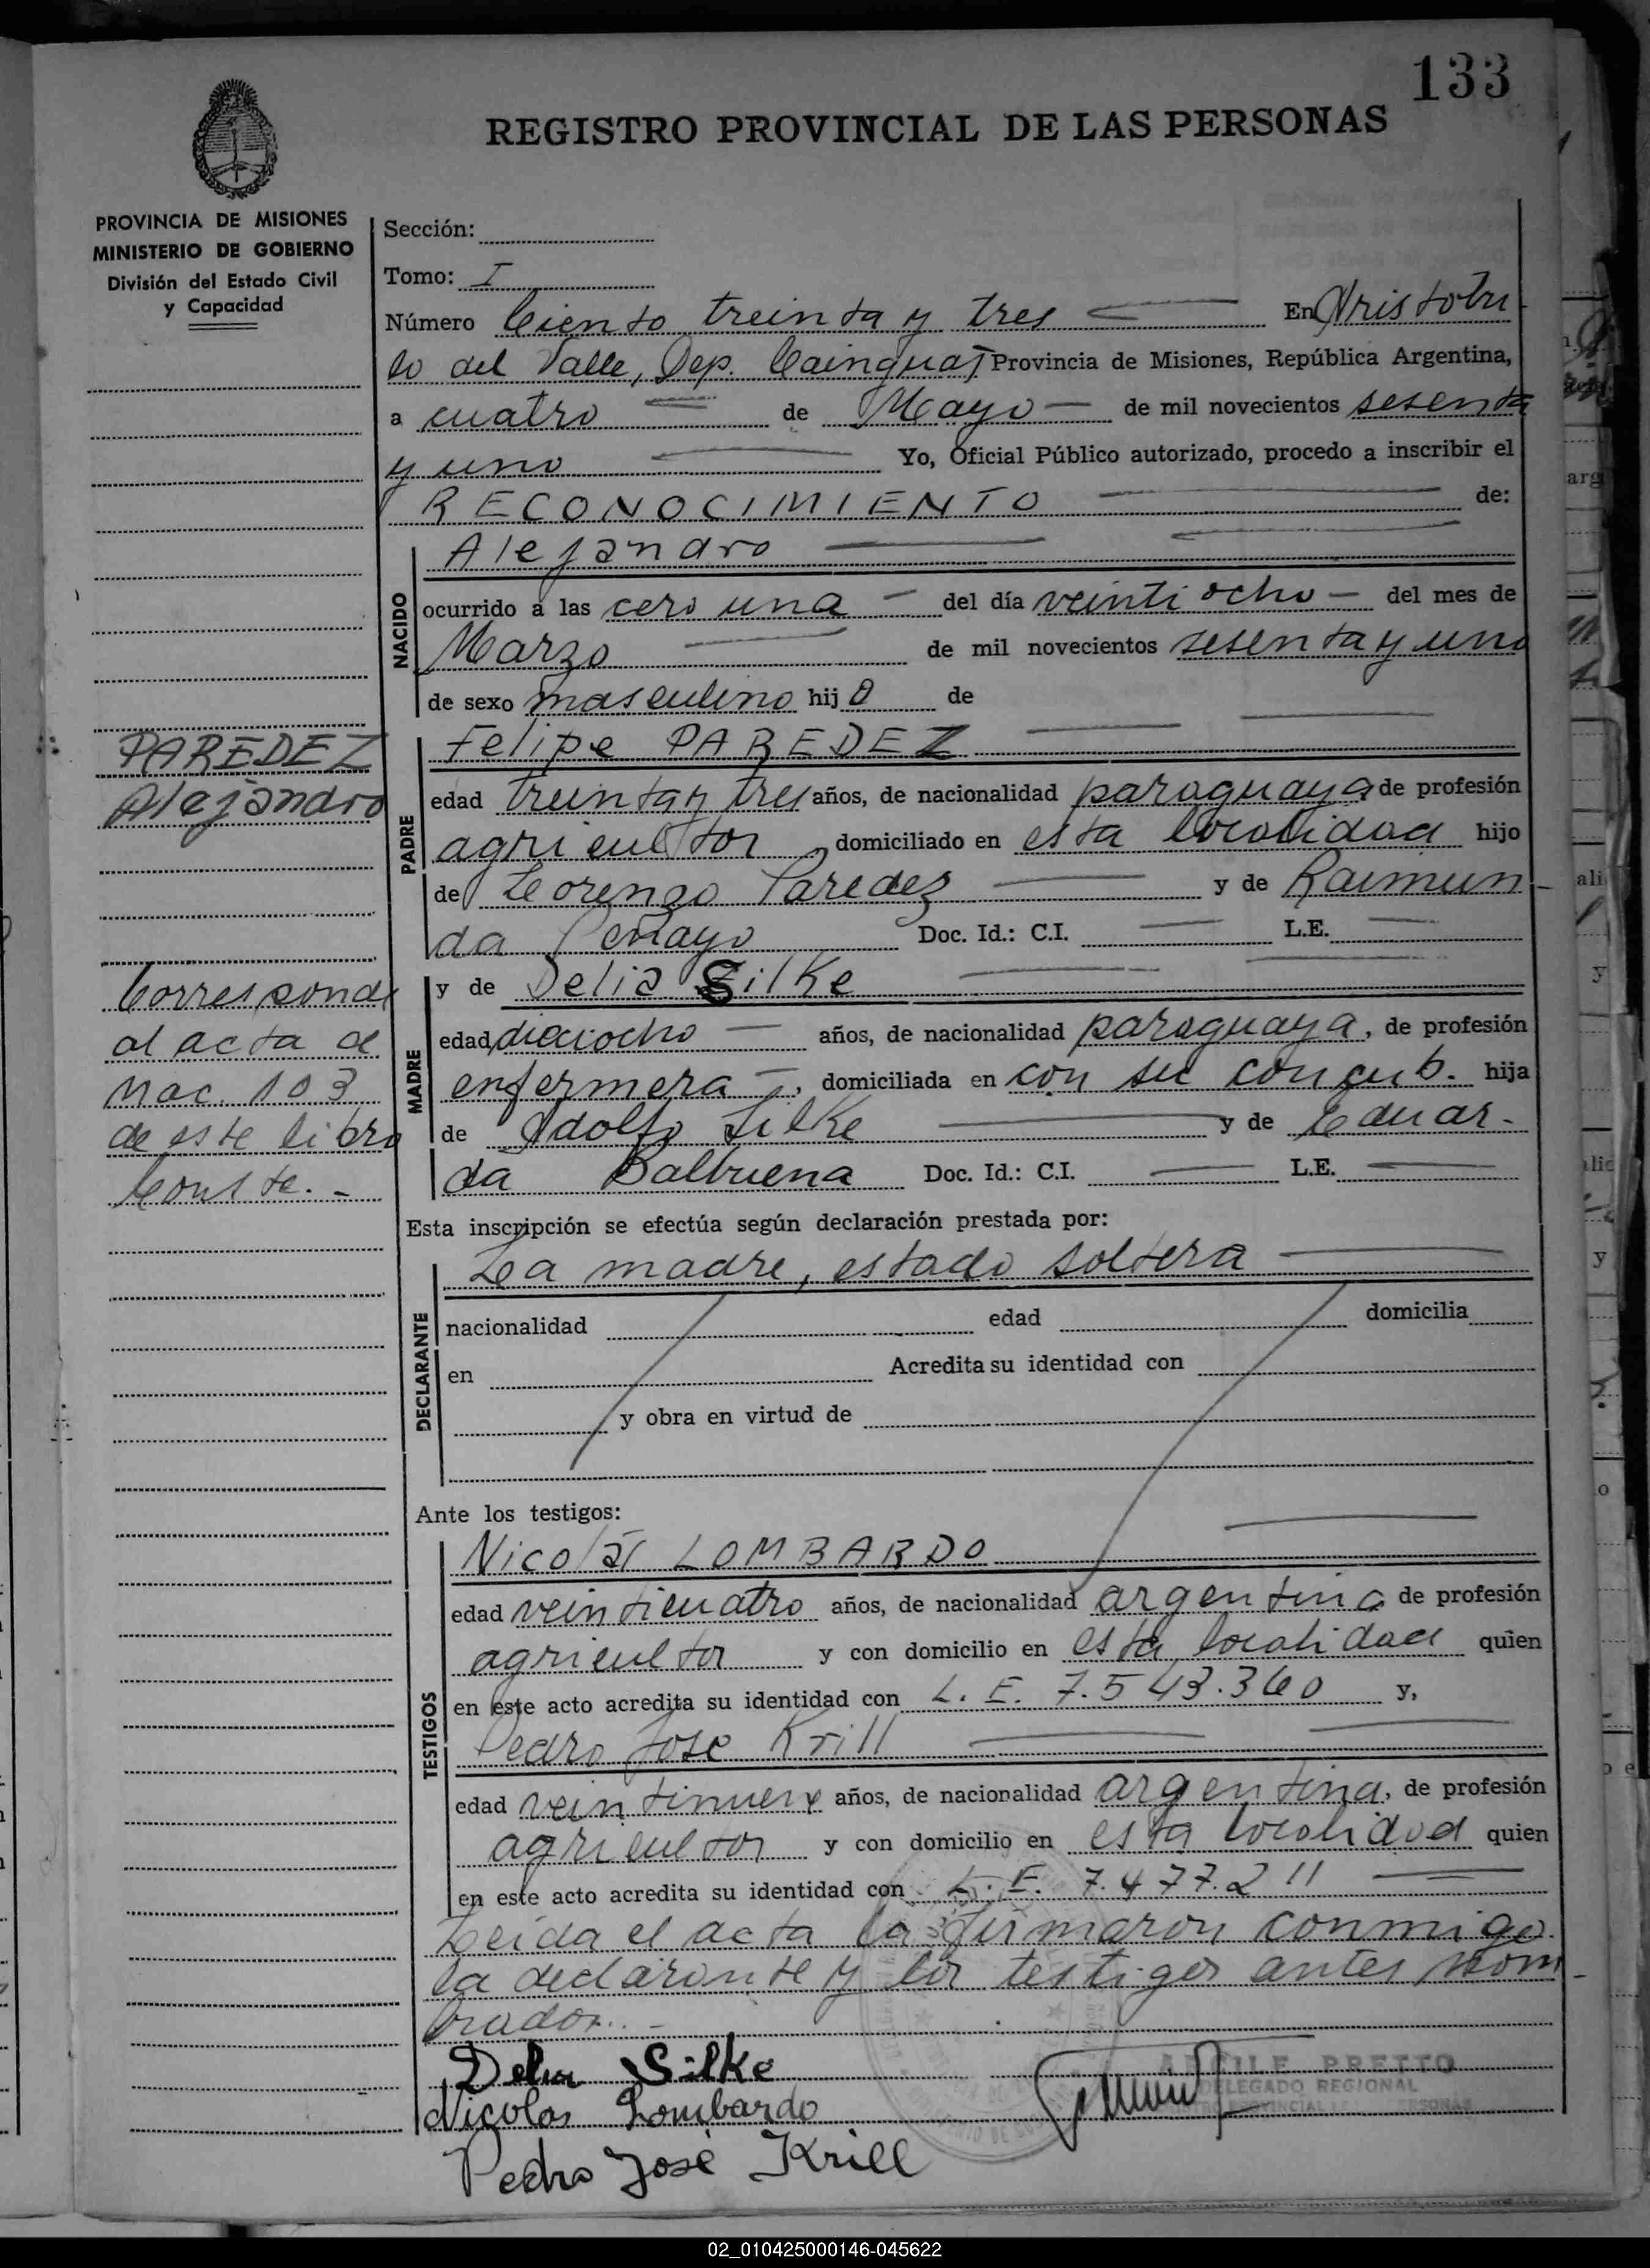 133
REGISTRO PROVINCIAL DE LAS PERSONAS
PROVINCIA DE MISIONES
MINISTERIO DE GOBIERNO
División del Estado Civil
y Capacidad
Sección:
Tomo: I
Número Ciento treinta y tres En Aristobu
lo del Valle, Dep. Cainguas Provincia de Misiones, República Argentina,
a cuatro de Mayo de mil novecientos sesenta
y uno Yo, Oficial Público autorizado, procedo a inscribir el
RECONOCIMIENTO de:
Alejandro
NACIDO
ocurrido a las cero una del día veinti ocho del mes de
Marzo de mil novecientos sesenta y uno
de sexo masculino hijo de
PAREDEZ
Alejandro
PADRE
Felipe PAREDEZ
edad treinta y tres años, de nacionalidad paraguaya de profesión
agricultor, domiciliado en esta localidad hijo
de Lorenzo Paredez y de Raimun-
da Penayo Doc. Id.: C.I. L.E.
Corresponde
al acta de
nac. 103
de este libro
Conste.-
MADRE
y de Delia Silke
edad dieciocho años, de nacionalidad paraguaya, de profesión
enfermera, domiciliada en con su concub. hija
de Adolfo Silke y de Eduar-
da Balbuena Doc. Id.: C.I. L.E.
Esta inscripción se efectúa según declaración prestada por:
DECLARANTE
La madre, estado soltera
nacionalidad edad domicilia
en Acredita su identidad con
y obra en virtud de
Ante los testigos:
TESTIGOS
Nicolás LOMBARDO
edad veinticuatro años, de nacionalidad argentina de profesión
agricultor y con domicilio en esta localidad quien
en este acto acredita su identidad con L. E. 7.543.360 y,
Pedro José Krill
edad veintinueve años, de nacionalidad argentina, de profesión
agricultor y con domicilio en esta localidad quien
en este acto acredita su identidad con L. E. 7.477.211
Leída el acta la firmaron conmigo
la declarante y los testigos antes nom-
brados.-
Delia Silke
Nicolas Lombardo
Pedro José Krill
PRETTO
DELEGADO REGIONAL
02_010425000146-045622